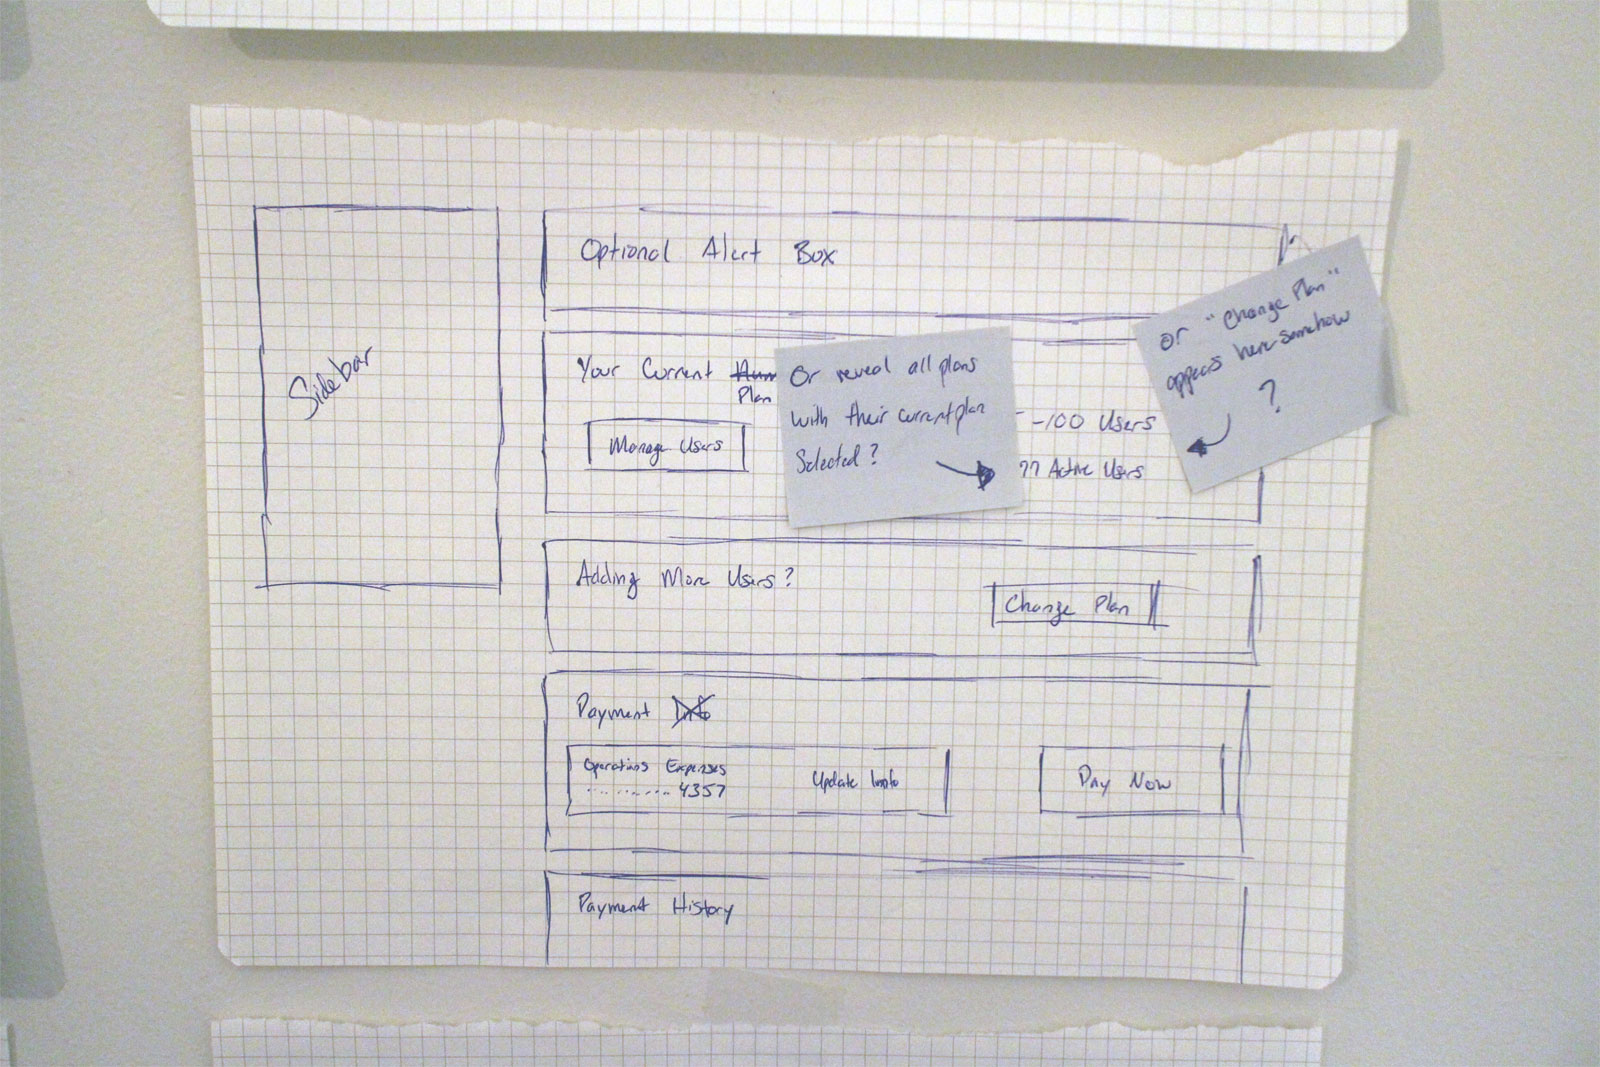 Sidebar
Optional Alert Box
Your Current
Plan
Manage Users
Or reveal all plans
with their current plan
Selected?
-100 Users
77 Active Users
or "Change Plan"
appears here somehow
?
Adding More Users?
Change Plan
Payment Info
Operations Expenses
.......... 4357
Update Info
Pay Now
Payment History